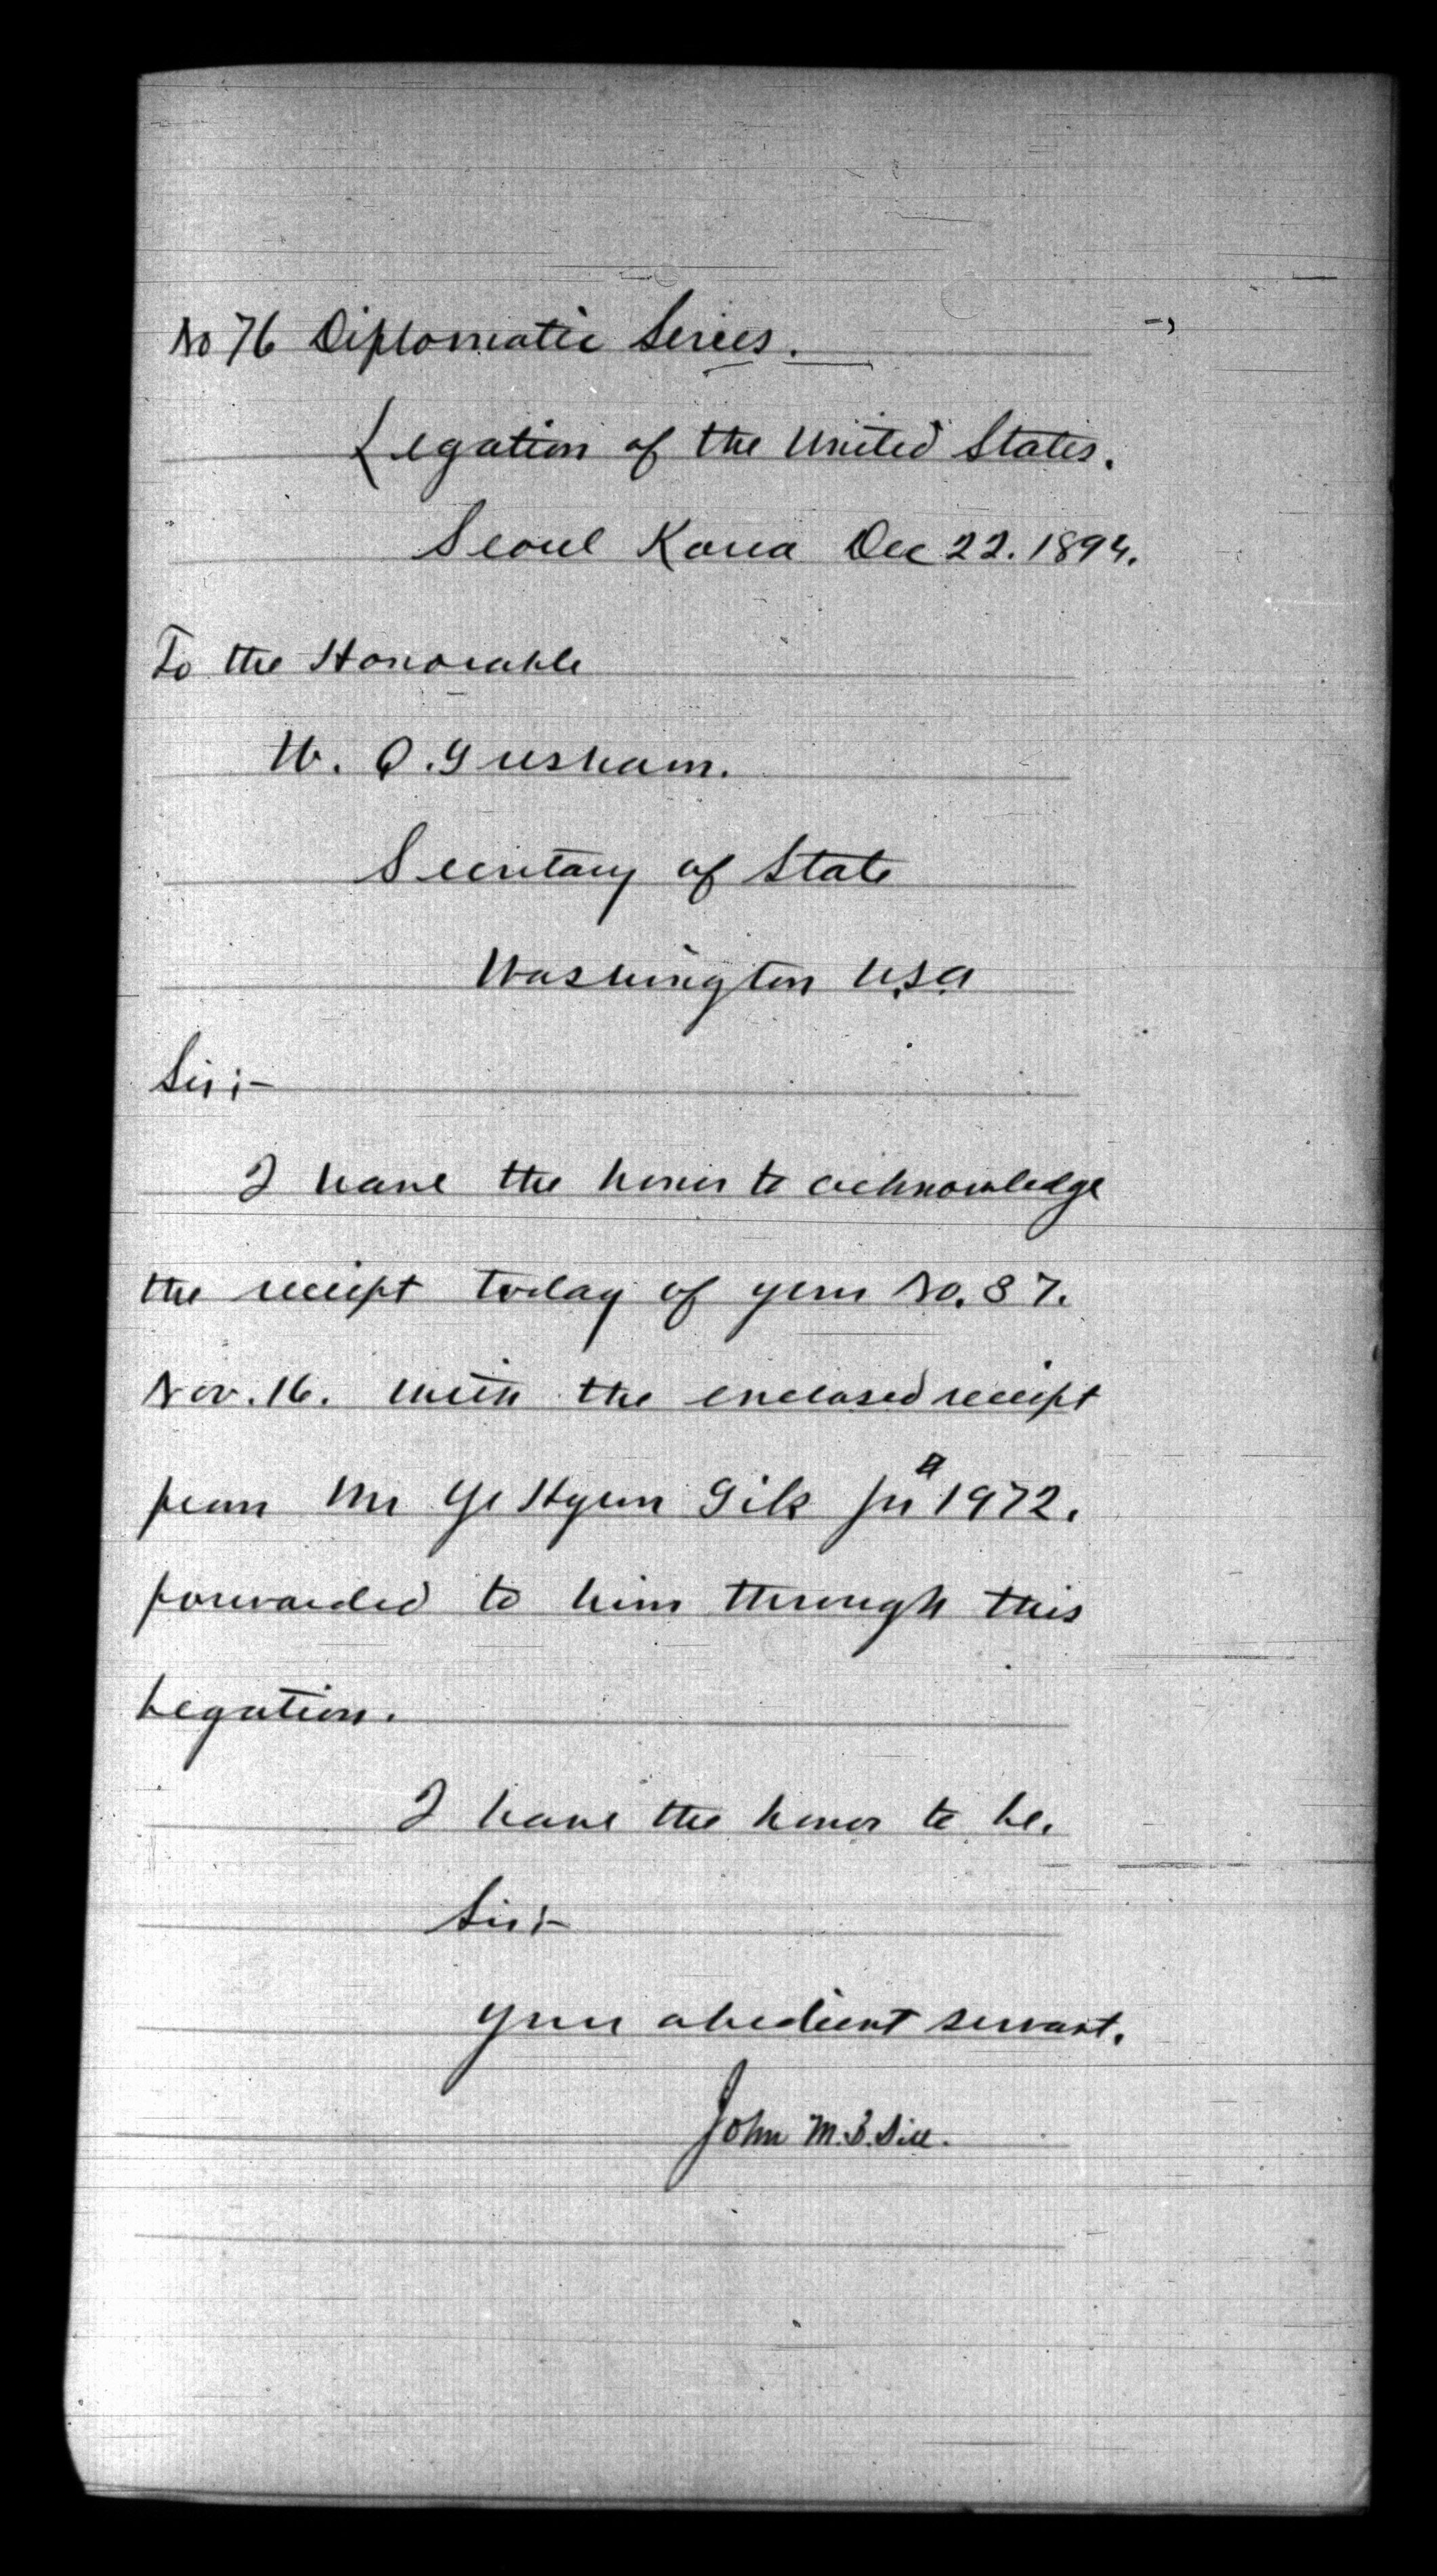 No 76 Diplomatic Series.
Legation of the United States.
Seoul Korea Dec 22. 1894.
To the Honorable
W. Q. Gresham.
Secretary of State
Washington U.S.A
Sir:-
I have the honor to acknowledge
the receipt today of your No. 87.
Nov. 16. with the enclosed receipt
from Mr Ye Hyun Gik for 1972.
forwarded to him through this
Legation.
I have the honor to be.
Sir:-
Your obedient servant.
John M. B. Sill.